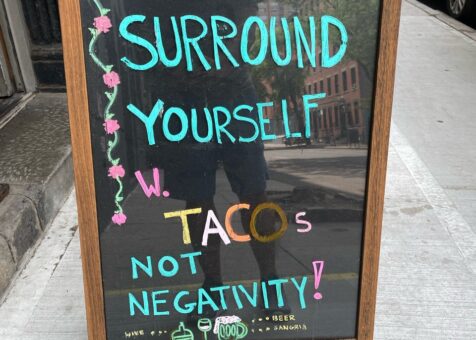 SURROUND
YOURSELF
W.
TACOS
NOT
NEGATIVITY!
WINE ... ... BEER
SANGRIA